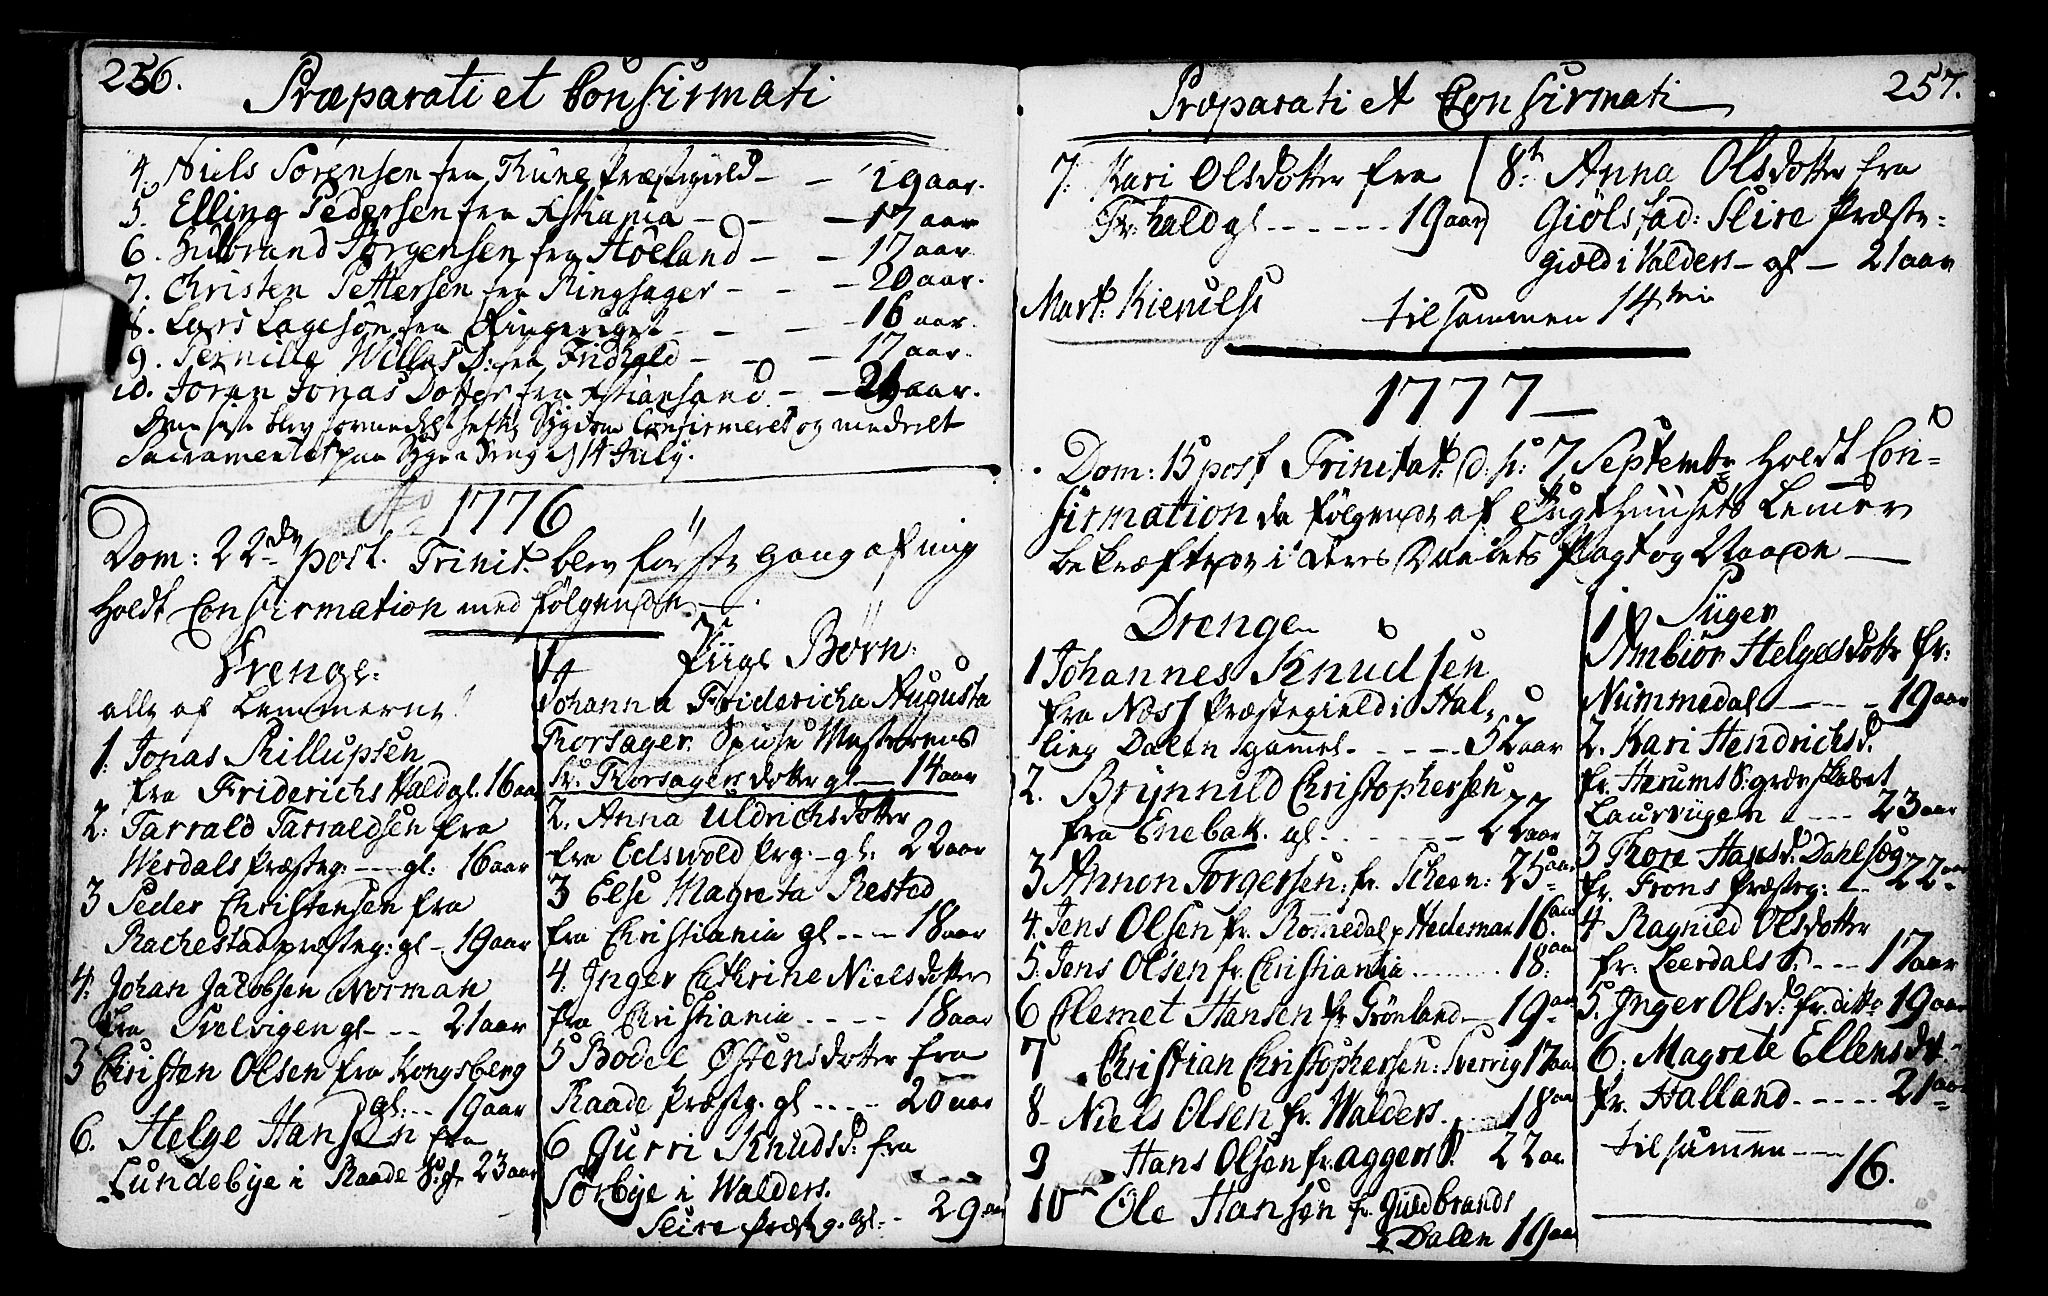 256.
Præparati et Confirmati
4. Niels Sörensen fra Thune Præstegield — — 19 aar.
5. Elling Pedersen fra Xstiania — — — 17 aar
6. Hilbrand Jörgensen fra Höeland — — 17 aar
7. Christen Pettersen fra Ringsager — — — 20 aar.
8. Lars Lagesön fra Ringeriget — — — 16 aar.
9. Pernille Willas D: fra Fridhald — — — 17 aar.
10. Joran Jonas Dotter fra Xstiansand — — 21 aar.
Den siste blev formedelst heftig Sygdom Confirmeret og meddeelt
Sacramentet paa Syge Seng d 14 July.
Ao 1776
Dom: 22de post. Trinit. blev förste gang af mig
holdt Confirmation med fölgende.
Drenge:
alle af Lemmerne!
1. Jonas Phillupsen
fra Friderichs Hald gl. 16 aar
2. Tarrald Tarraldsen fra
Werdals Præsteg: — gl: 16 aar
3 Peder Christensen fra
Rachestad præsteg: gl — 19 aar
4. Johan Jacobsen Norman
fra Svelvigen gl — — 21 aar
5 Christen Olsen fra Kongsberg
gl: — 19 aar
6. Helge Hansen fra
Lundebye i Raade P: gl 23 aar
Piige Börn:
1
Johanna Fridericha Augusta
Korsager. Spinse Mesterens
hr. Korsagers dotter gl — 14 aar
2. Anna Uldrichsdotter
fra Eidswold Prg: — gl: 22 aar
3 Else Magreta Restad
fra Christiania gl — — 18 aar
4. Inger Cathrine Nielsdotter
fra Christiania — — — 18 aar
5 Bodel Östensdotter fra
Raade Præsteg. gl — — — 20 aar
6 Gurri Knudsd: fra
Sörbye i Walders.
Slire Præsteg. gl: — 29 aar
Præparati et Confirmati
257.
7. Kari Olsdotter fra
Fr: hald gl — — — 19 aar
8. Anna Olsdotter fra
Giölstad: Slire Præste-
gield i Valders — gl — 21 aar
Mart: Kierulf
tilsammen 14ten
1777
Dom: 15 post Trinitat: d: h: 7 Septembr holdt Con-
firmation da fölgende af Tugthuusets Lemmer
bekræftede i deres Daabes Pagt og Naade —
Drenge
1 Johannes Knudsen
fra Næss Præstegield i Hal-
ling Dalen gammel. — — — 52 aar
2. Brynnild Christophersen
fra Enebak. gl. — — — 22 aar
3 Annon Torgersen: fr. Scheen: 25 aar
4. Jens Olsen fr. Rommedal p Hedemar. 16 aar
5. Jens Olsen fr. Christiania — — 18 aar
6 Clemet Hansen fr. Grönland — 19 aar
7 Christian Christophersen: Sverrig 17 aar
8 — Niels Olsen fr. Walders. — 18 aar
9 Hans Olsen fr. aggers P. 22 aar
10 Ole Hansen fr. Guldbrands
Dalen 19 aar
Piiger
1 Ambiör Helgesdotter fr:
Nummedal — — — 19 aar
2. Kari Hendrichsd.
fr. Herums P: grævskabet
Laurvigen — — — 23 aar
3 Thore Hansd: Dahlsög
fr. Frons Præsteg: — 22 aar
4 Ragnild Olsdotter
fr: Leerdals P: — — 17 aar
5. Inger Olsd: fr. ditto 19 aar
6. Magrete Ellensdt
fr. Halland — — — 21 aar
tilsammen — —
16.